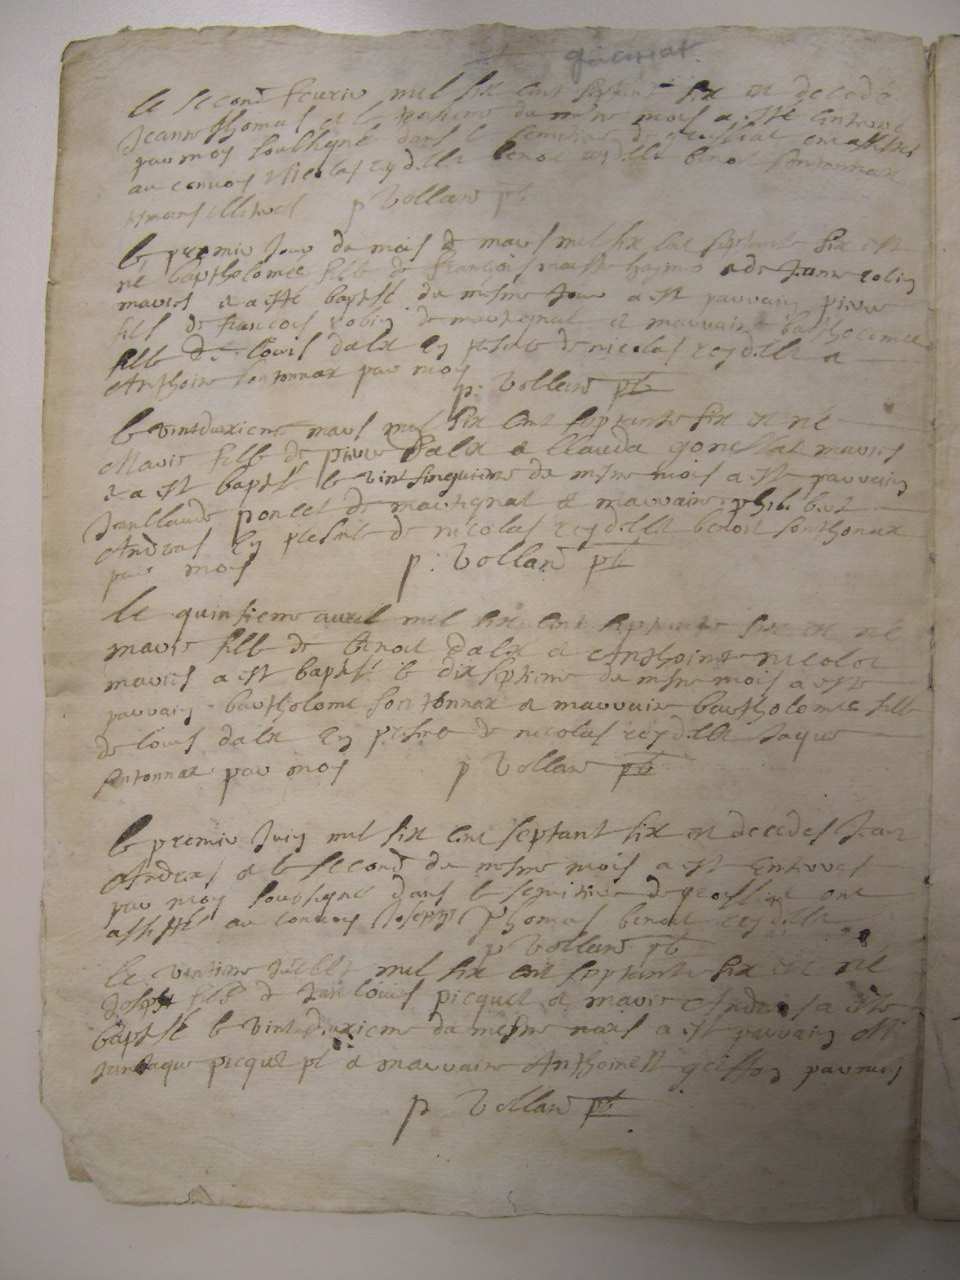 le second feurier mil six cent septante six est decedé
Jeanne thomas et le troisieme du mesme mois a esté enterré
par moy soubsigné dans le semitiere de grussiat ont assistés
au convoy nicolas reydellet benoit reydellet benoit sontonnax
p Vollard pbr
le premier Jour du mois de mars mil six cent septante six est
né bartholomee fille de françois et de Jeanne robin
mariés et a esté baptisé du mesme Jour a est parrain pierre
fils de francois robin de martignat et marraine bartholomee
fille de louis dalex en presence de nicolas reydellet et
Anthoine sontonnax par moy
p. Vollard pbr
le vintdeuxieme mars mil six cent septante six est né
Marie fille de pierre dalex et Clauda gonessiat mariés
et a est baptisé le vintsinquieme du mesme mois a esté parrain
Janclaude poncet de martignat et marraine philiberte
Andreas en presence de nicolas reydellet benoit sonthonax
par moy p. Vollard pbr
le quinsieme auril mil six cent septante six est né
marie fille de benoit dalex et Anthoine nicolet
mariés a est baptisé le dixseptieme du mesme mois a esté
parrain bartholome sontonnax et marraine bartholomee fille
de louis dalex en presence de nicolas reydellet Jaque
sontonnax par moy p Vollard pbr
le premier Juin mil six cent septant six est decedes Jean
Andreas et le second du mesme mois a est enterres
par moy soubsigné dans le semitiere de grossiat ont
assisté au convoy Joseph thomas benoit reydellet
p Vollard pbr
Le vintieme Juillet mil six cent septante six est né
Joseph fils de Jan louis picquet et marie Andreas a esté
baptisé le vintdeuxieme du mesme mois a est parrain
Janjaque picquet pb et marraine Anthoinett griffon par moy
p Vollard pbr